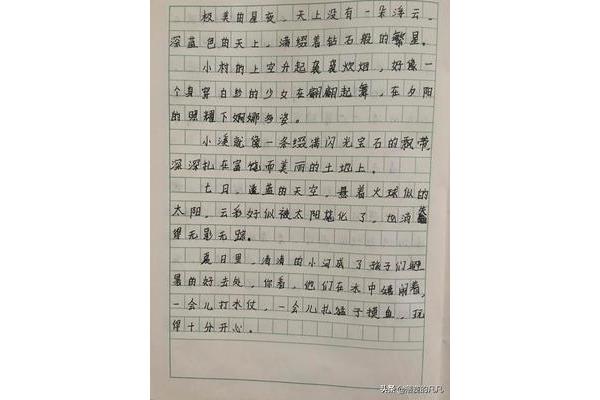 极美的星夜，天上没有一朵浮云，
深蓝色的天上，满缀着钻石般的繁星。
小村的上空升起袅袅炊烟，好像一
个身穿白纱的少女在翩翩起舞，在夕阳
的照耀下婀娜多姿。
小溪就像一条缀满闪光宝石的飘带，
深深扎在富饶而美丽的土地上。
七月，透蓝的天空，悬着火球似的
太阳，云彩好似被太阳烧化了，也消失
得无影无踪。
夏日里，清清的小河成了孩子们避
暑的好去处，你看，他们在水中嬉闹着，
一会儿打水仗，一会儿扎猛子摸鱼，玩
得十分开心。
头条 @潘爱的凡凡